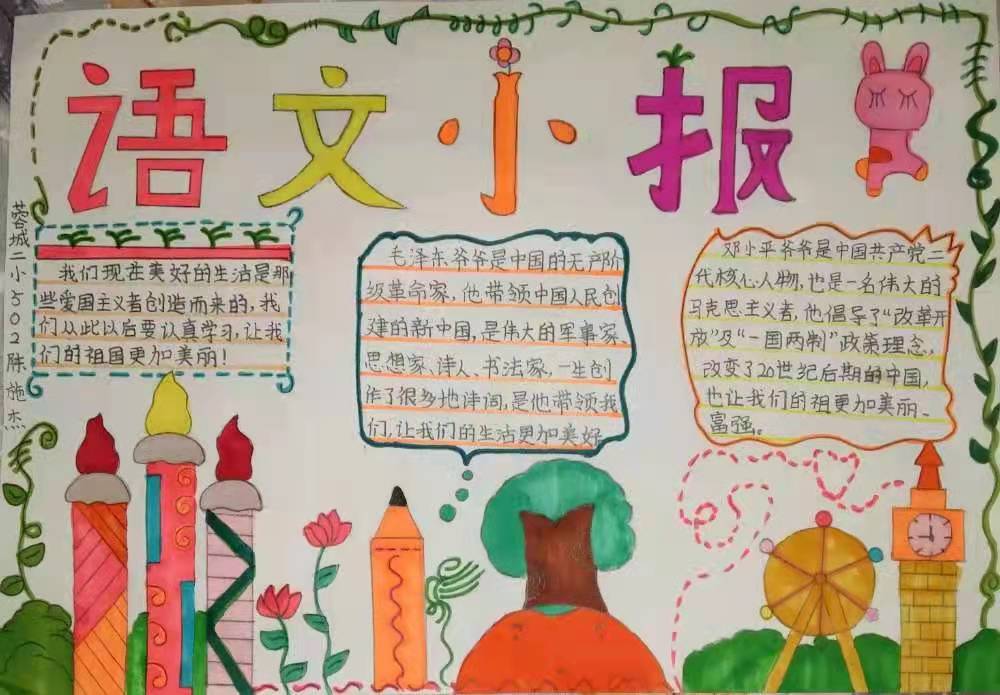 语文小报
蓉城二小502陈施杰
我们现在美好的生活是那
些爱国主义者创造而来的,我
们从此以后要认真学习,让我
们的祖国更加美丽!
毛泽东爷爷是中国的无产阶
级革命家,他带领中国人民创
建的新中国,是伟大的军事家、
思想家、诗人、书法家,一生创
作了很多地诗词,是他带领我
们,让我们的生活更加美好
邓小平爷爷是中国共产党二
代核心人物,也是一名伟大的
马克思主义者,他倡导了“改革开
放”及“一国两制”政策理念,
改变了20世纪后期的中国,
也让我们的祖更加美丽、
富强。